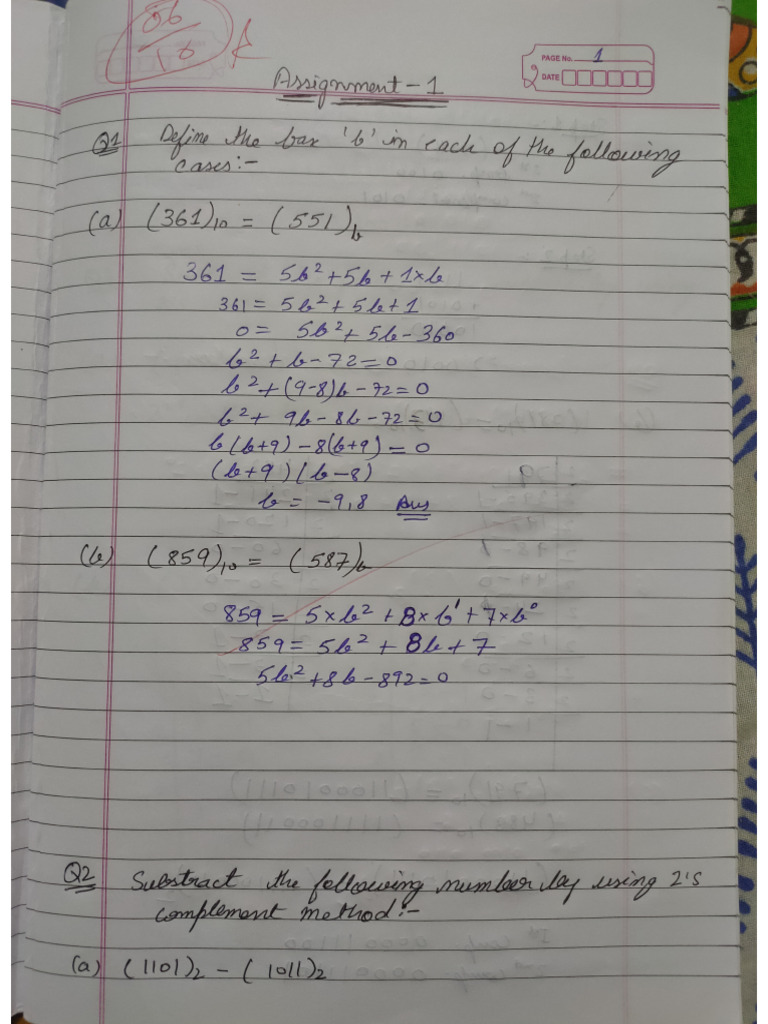 06/10
PAGE No. 1
DATE
Assignment-1
Q1 Define the bax 'b' in each of the following
cases:-
(a) (361)₁₀ = (551)b
361 = 5b²+5b+1×b
361 = 5b²+5b+1
0 = 5b²+5b-360
b²+b-72=0
b²+(9-8)b-72=0
b²+9b-8b-72=0
b(b+9)-8(b+9)=0
(b+9)(b-8)
b = -9,8 Ans
(b) (859)₁₀ = (587)b
859 = 5×b²+8×b¹+7×b⁰
859 = 5b²+8b+7
5b²+8b-892=0
Q2 Substract the following number by using 2's
complement method:-
(a) (1101)₂ - (1011)₂